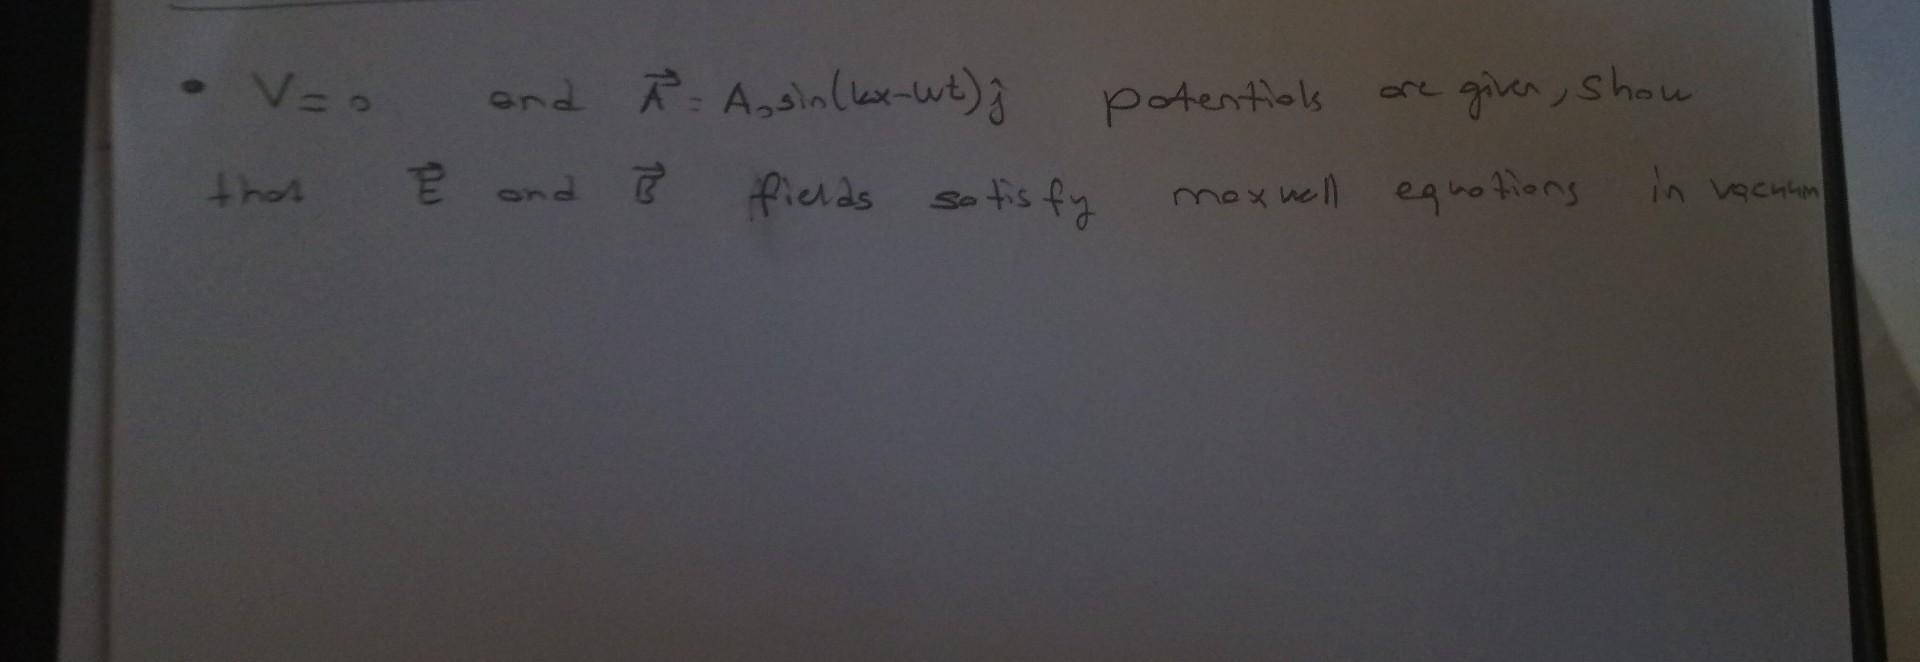 • V=0 and A⃗ = A₀sin(kx-wt)ĵ potentials are given, show
that E⃗ and B⃗ fields satisfy maxwell equations in vacuum